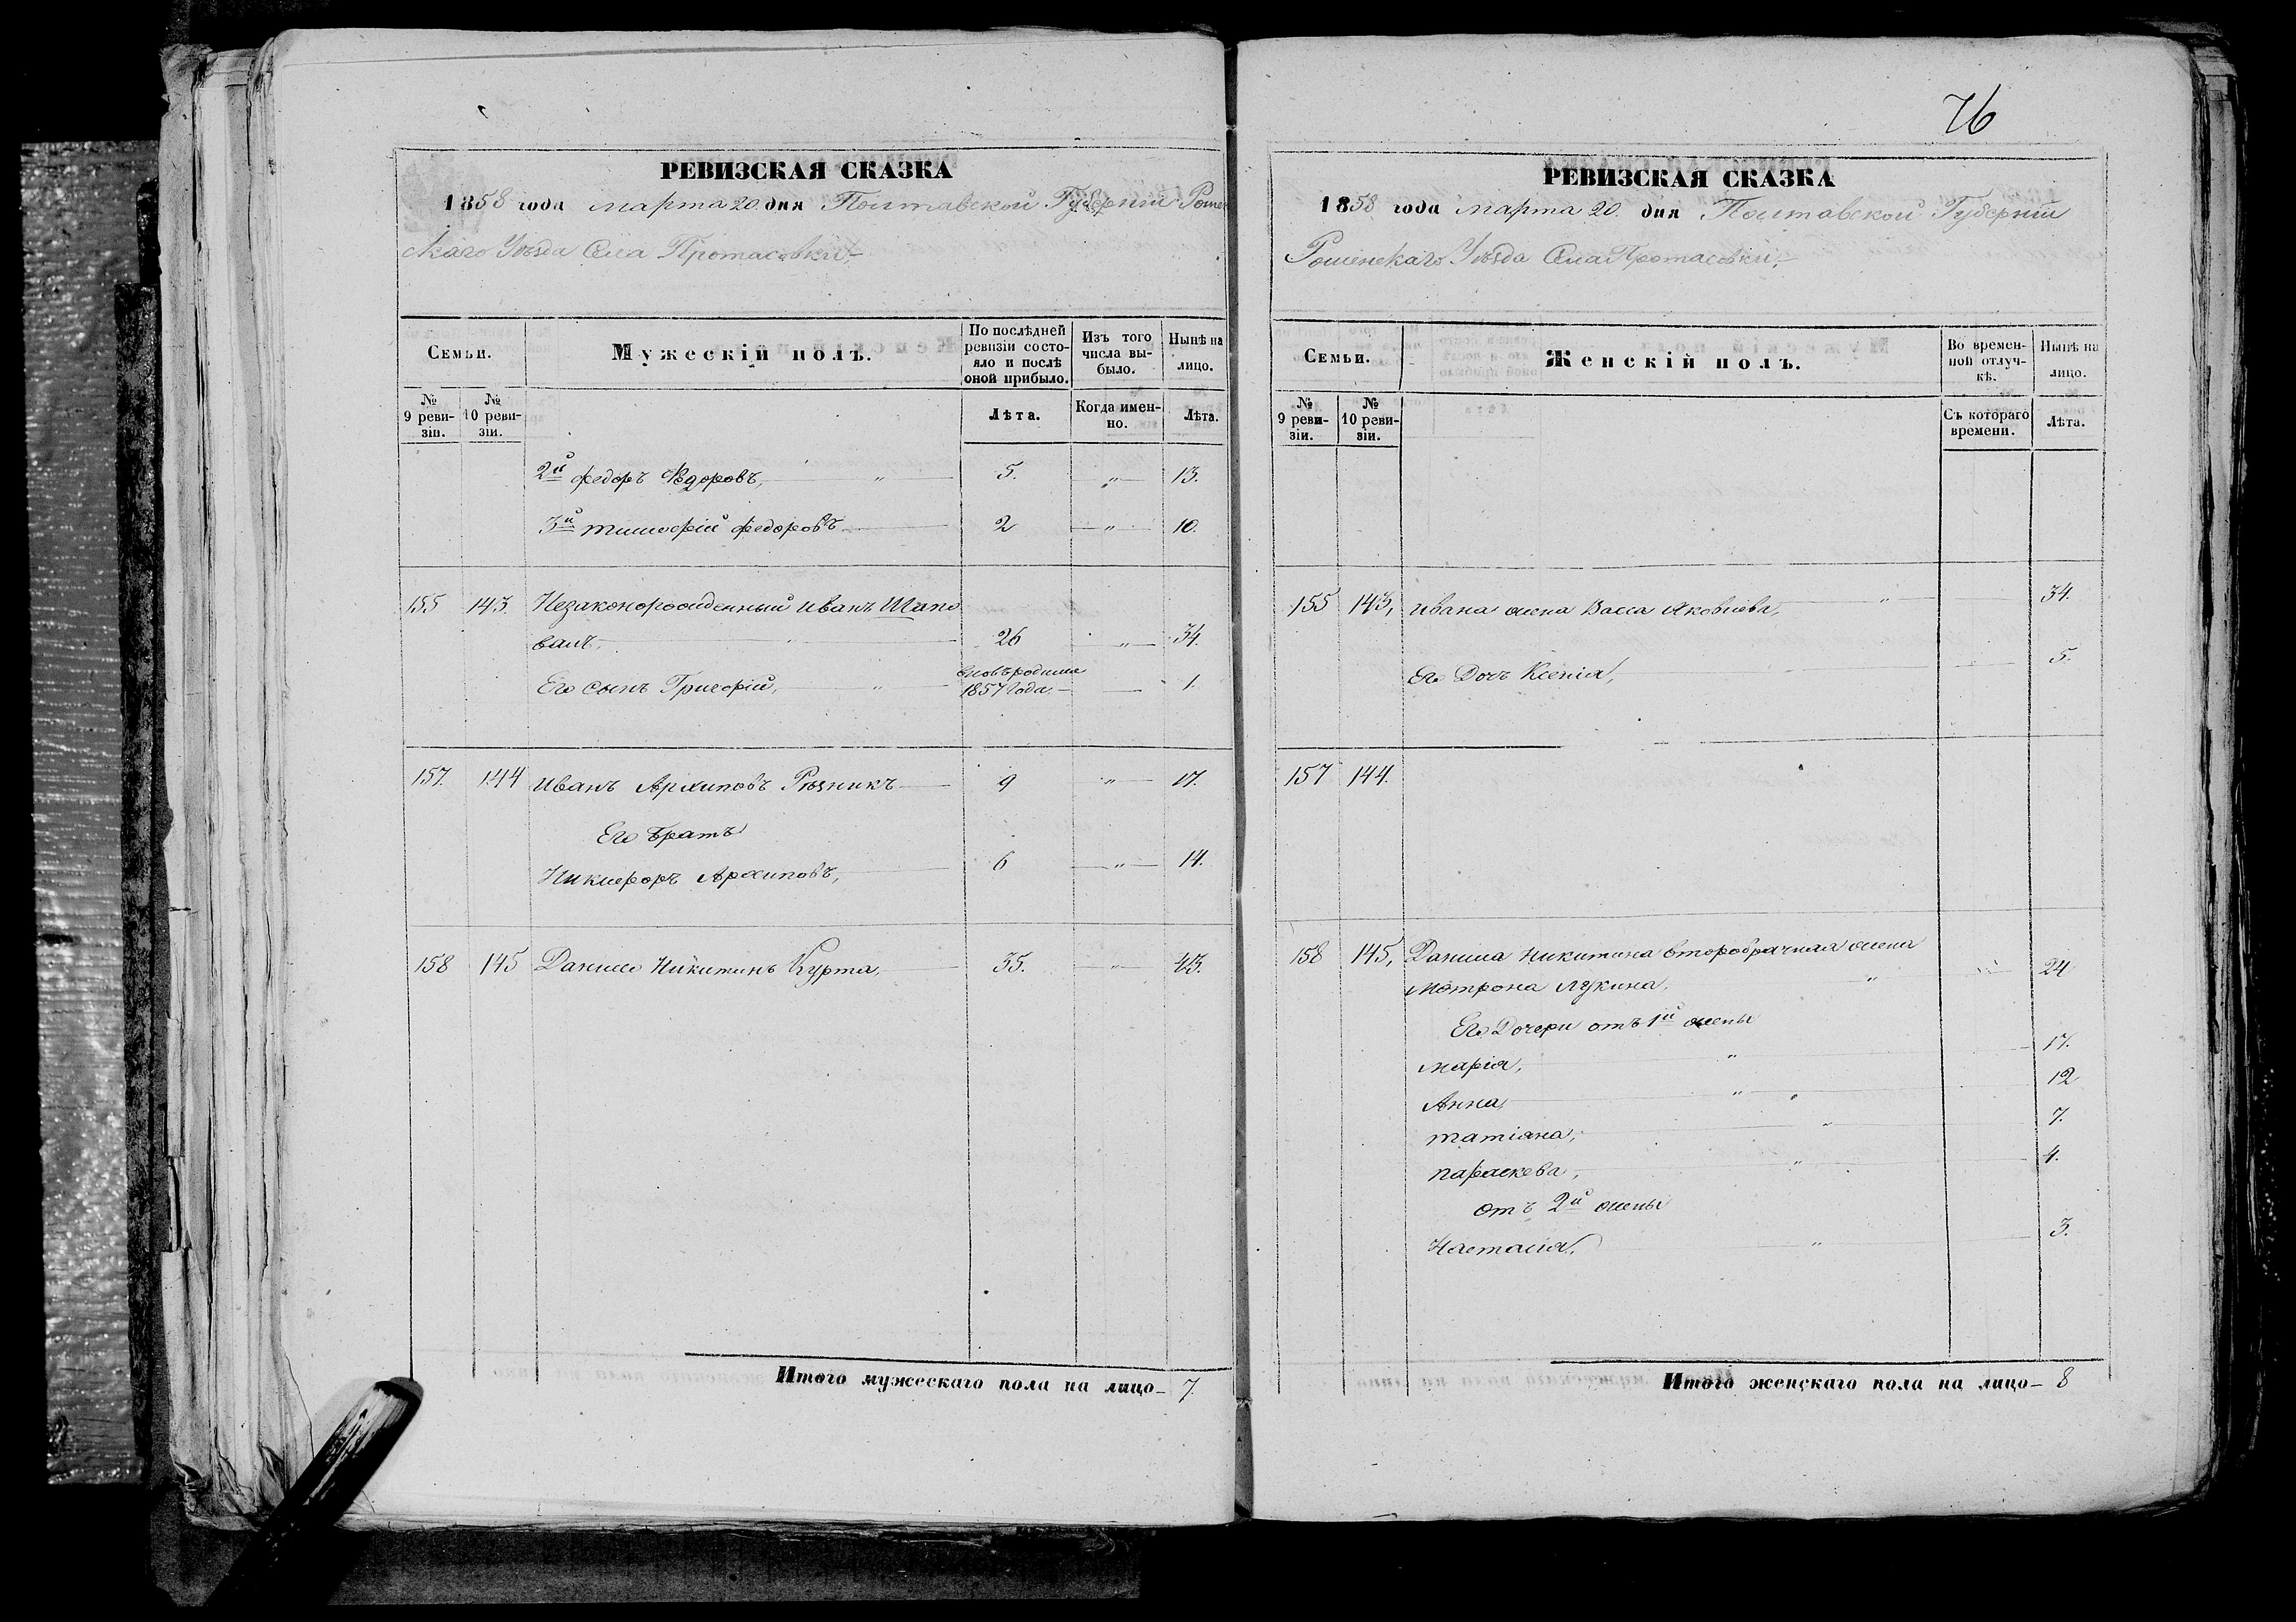 РЕВИЗСКАЯ СКАЗКА
1858 года марта 20 дня Полтавской Губернии Ромен
скаго Уѣзда Села Протасовки,
Семьи.
Мужескій полъ.
По послѣдней ревизіи состо-
яло и послѣ
оной прибыло.
Изъ того
числа вы-
было.
Нынѣ на
лицо.
№
9 реви-
зіи.
№
10 реви-
зіи.
Лѣта.
Когда имен-
но.
Лѣта.
2й Федоръ Федоровъ, " 5. " 13.
3й Тимофій Федоровъ 2 " 10.
155 143. Незаконорожденный Иванъ Шапо
валъ, " 26 " 34.
Его сынъ Григорій, " вновь родил.
1857 года. 1.
157. 144 Иванъ Архиповъ Рѣзникъ 9 " 17.
Его братъ
Никифоръ Архиповъ, 6 " 14.
158 145 Данило Никитинъ Курта, 35. " 43.
Итого мужескаго пола на лицо 7.
76
РЕВИЗСКАЯ СКАЗКА
1858 года марта 20 дня Полтавской Губернии
Роменскаго Уѣзда Села Протасовки,
Семьи.
Женскій полъ.
Во времен-
ной отлуч-
кѣ.
Нынѣ на
лицо.
№
9 реви-
зіи.
№
10 реви-
зіи.
Съ котораго
времени.
Лѣта.
155 143, Ивана жена Васса Яковлева, " 34.
Его Доч Ксенія, 5.
157 144.
158 145, Данила Никитина второбрачная жена
Мотрона Лукина, " 24
Его Дочери отъ 1й жены
Марія, " 17.
Анна, " 12
Татіана, " 7.
Параскева, " 4.
отъ 2й жены
Настасія, " 3.
Итого женскаго пола на лицо 8